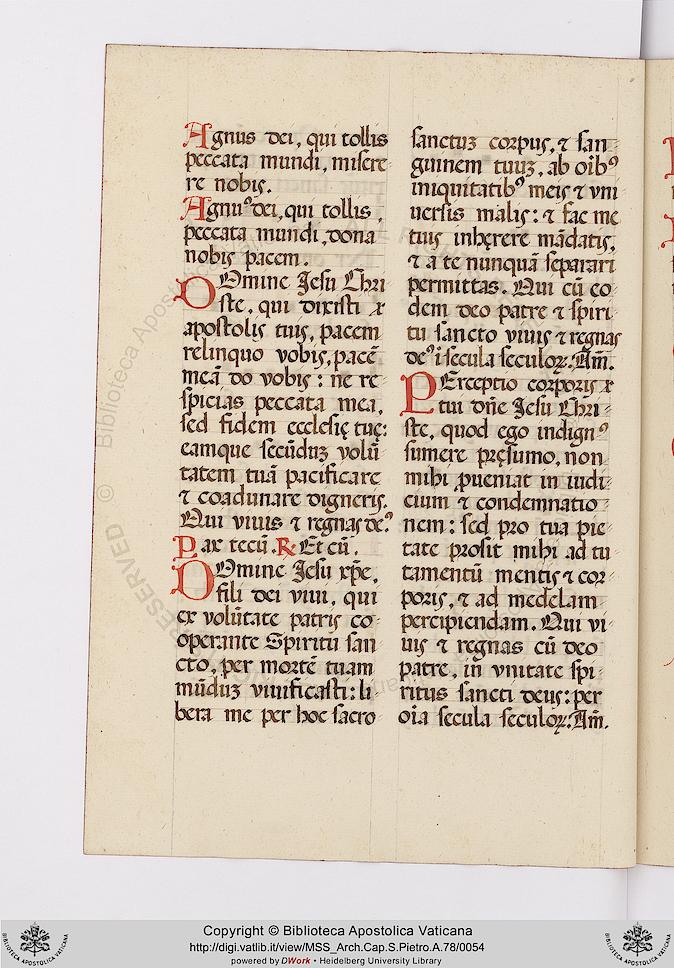 Agnus dei, qui tollis
peccata mundi, misere
re nobis.
Agnuꝰ dei, qui tollis,
peccata mundi, dona
nobis pacem.
DOmine Jesu Chri
ste, qui dixisti
apostolis tuis, pacem
relinquo vobis, pacē
meā do vobis: ne re
spicias peccata mea,
sed fidem ecclesię tuę:
eamque secūduꝫ volū
tatem tuā pacificare
⁊ coadunare digneris.
Qui viuis ⁊ regnas deꝰ.
Pax tecū. ℟ Et cū.
DOmine Jesu xp̄e,
fili dei viui, qui
ex volūtate patris co
operante Spiritu san
cto, per mortē tuam
mūduꝫ viuificasti: li
bera me per hoc sacro
sanctuꝫ corpus, ⁊ san
guinem tuuꝫ, ab oībꝰ
iniquitatibꝰ meis ⁊ vni
uersis malis: ⁊ fac me
tuis inhęrere mādatis,
⁊ a te nunquā separari
permittas. Qui cū eo
dem deo patre ⁊ spiri
tu sancto viuis ⁊ regnas
deꝰ ī secula seculoꝝ. Am̄.
PErceptio corporis x
tui dn̄e Jesu Chri
ste, quod ego indignꝰ
sumere pręsumo, non
mihi ꝓueniat in iudi
cium ⁊ condemnatio
nem: sed pro tua pie
tate prosit mihi ad tu
tamentū mentis ⁊ cor
poris, ⁊ ad medelam
percipiendam. Qui vi
uis ⁊ regnas cū deo
patre, in vnitate spi
ritus sancti deus: per
oīa secula seculoꝝ. Am̄.
Copyright © Biblioteca Apostolica Vaticana
http://digi.vatlib.it/view/MSS_Arch.Cap.S.Pietro.A.78/0054
powered by DWork • Heidelberg University Library